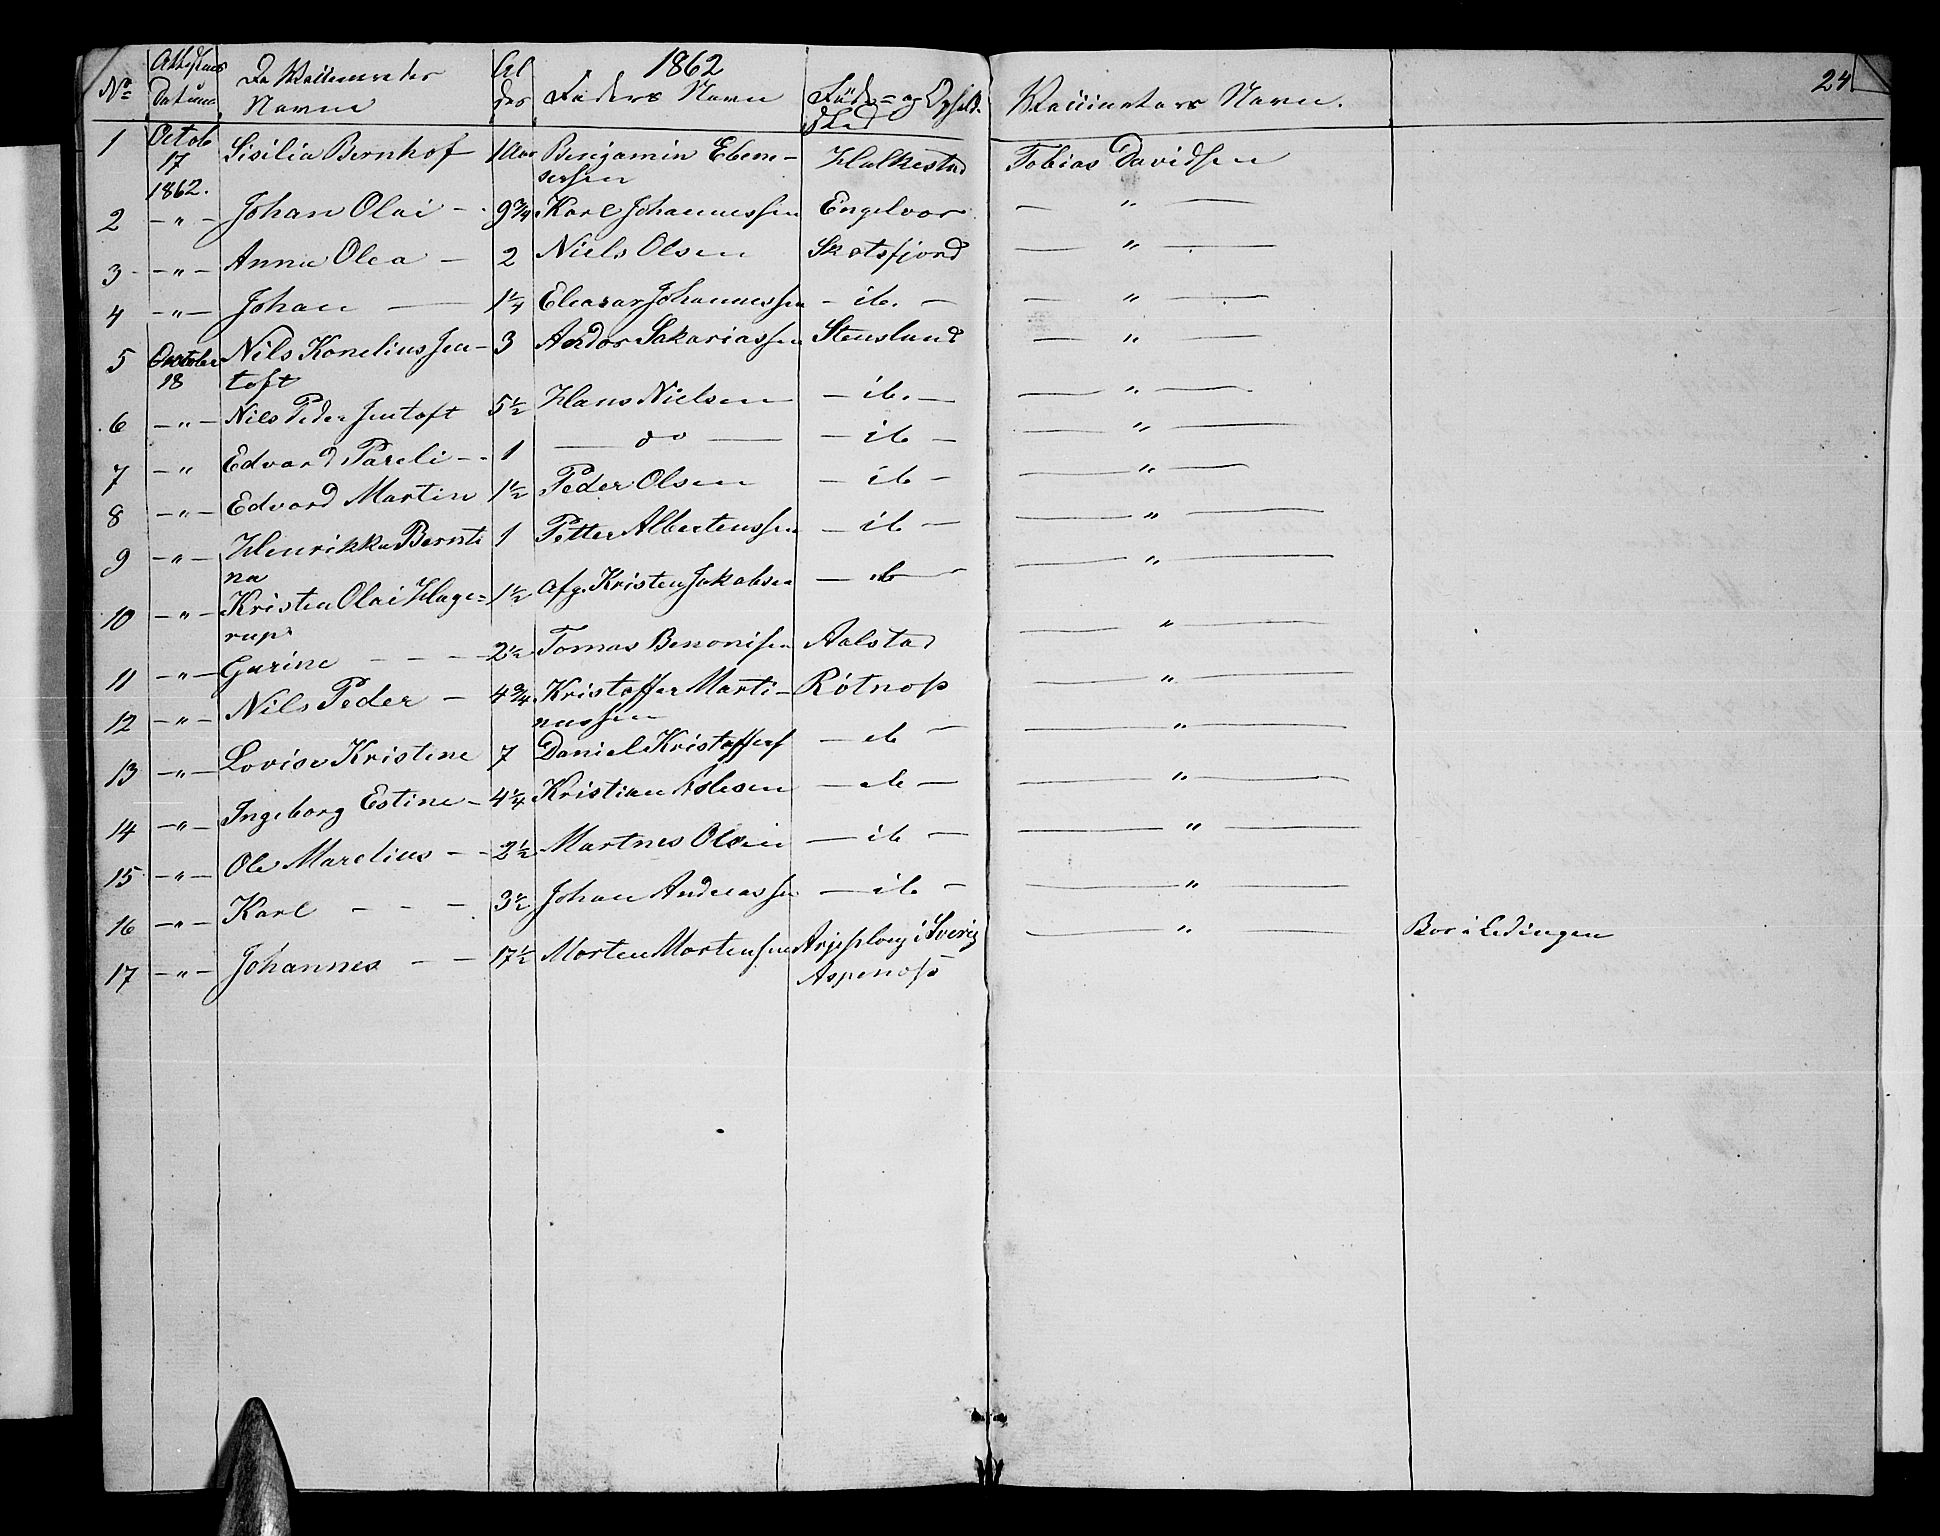 1862
24
No Attestens Datum De Vaccineredes Navne Alder Faders Navn Føde- og Opholdsted Vaccinators Navn.
1 Octob 17 1862. Sisilia Bernhof 1 Aar Benjamin Ebenesersen Halkestad Tobias Davidsen
2 — " — Johan Olai — 9 3/4 Karl Johannessen Engelvær — " —
3 — " — Anna Olea — 2 Niels Olsen Skotsfjord — " —
4 — " — Johan — 1 1/4 Eleasar Johannessen — ib. — — " —
5 October 18 Nils Konelius Jentoft 3 Andor Sakariassen Stensland — " —
6 — " — Nils Peder Jentoft 5 1/2 Hans Nielsen — ib. — — " —
7 — " Edvard Pareli — 1 — do — — ib — — " —
8 — " — Edvard Martin 1 1/2 Peder Olsen — ib — — " —
9 — " — Henrikka Berntina 1 Petter Albertenssen — ib — — " —
10 — " — Kristen Olai Hagerup 1 1/2 Afg. Kristen Jakobsen — ib — — " —
11 — " — Gurine — — — 2 1/2 Tomas Benonisen Aalstad — " —
12 — " — Nils Peder — 4 3/4 Kristoffer Martinussen Røtnøs — " —
13 — " — Lovise Kristine 7 Daniel Kristoffers — ib — — " —
14 — " — Ingeborg Estine — 4 1/4 Kristian Aslesen — ib — — " —
15 — " — Ole Marelius — 2 1/2 Martnes Olsen — ib — — " —
16 — " — Karl — — — 3 1/2 Johan Andreassen — ib — — " —
17 — " — Johannes — — 17 1/2 Morten Mortensen Arjeploug i Sverig Aspenøs — " — Bor i Lødingen